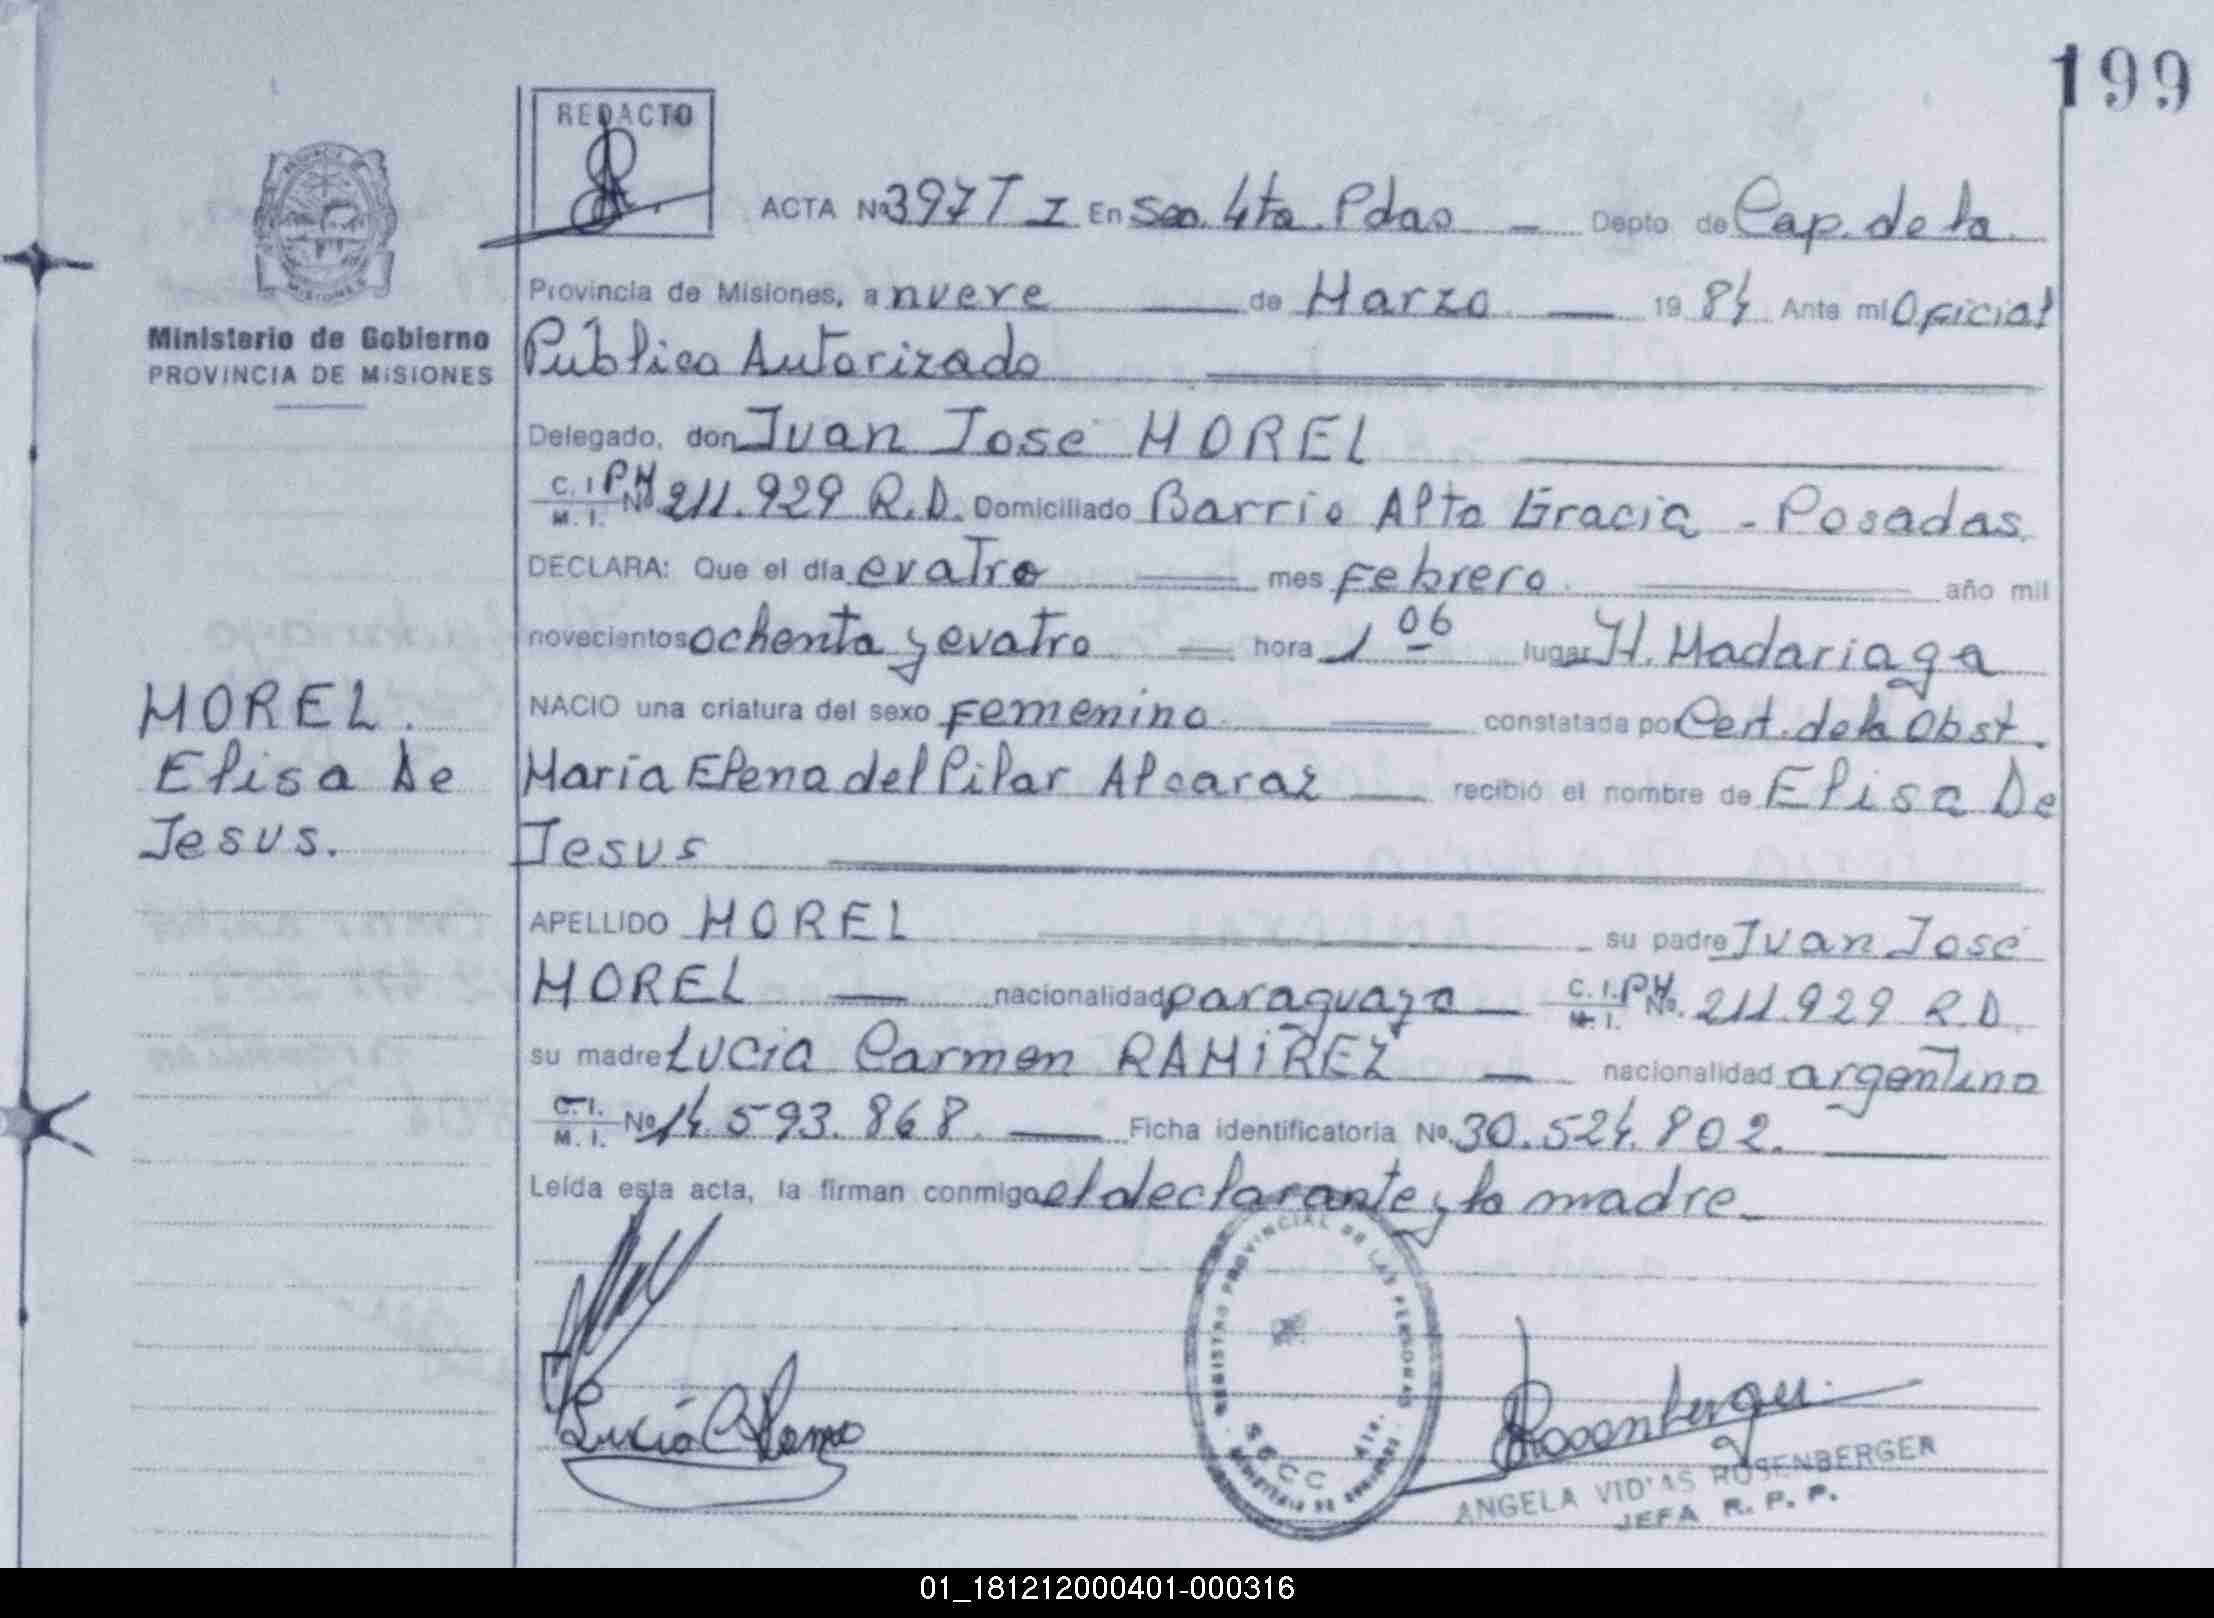 199
REDACTO
ACTA Nº 397 T I En Sec. 4ta. Pdas — Depto de Cap. de la
Provincia de Misiones, a nueve — de Marzo — 19 84 Ante mi Oficial
Ministerio de Gobierno
PROVINCIA DE MISIONES
Público Autorizado
Delegado, don Juan José MOREL
C. I. P.M. Nº 211.929 R.D. Domiciliado Barrio Alta Gracia - Posadas
M. I.
DECLARA: Que el día cuatro mes Febrero año mil
novecientos ochenta y cuatro hora 1 06 lugar H. Madariaga
NACIO una criatura del sexo Femenino constatada por Cert. de la Obst.
María Elena del Pilar Alcaraz — recibió el nombre de Elisa De
Jesus
MOREL.
Elisa De
Jesus.
APELLIDO MOREL su padre Juan José
MOREL — nacionalidad paraguaya — C. I. P.M. Nº. 211.929 R.D.
M. I.
su madre Lucia Carmen RAMIREZ — nacionalidad argentina
C. I. Nº 14.593.868. — Ficha identificatoria Nº 30.524.802.
M. I.
Leída esta acta, la firman conmigo el declarante y la madre
REGISTRO PROVINCIAL DE LAS PERSONAS
SECC 4ta.
MINISTERIO DE GOBIERNO
Lucia C Ramire
Rosenberger
ANGELA VIDAS ROSENBERGER
JEFA R. P. P.
01_181212000401-000316